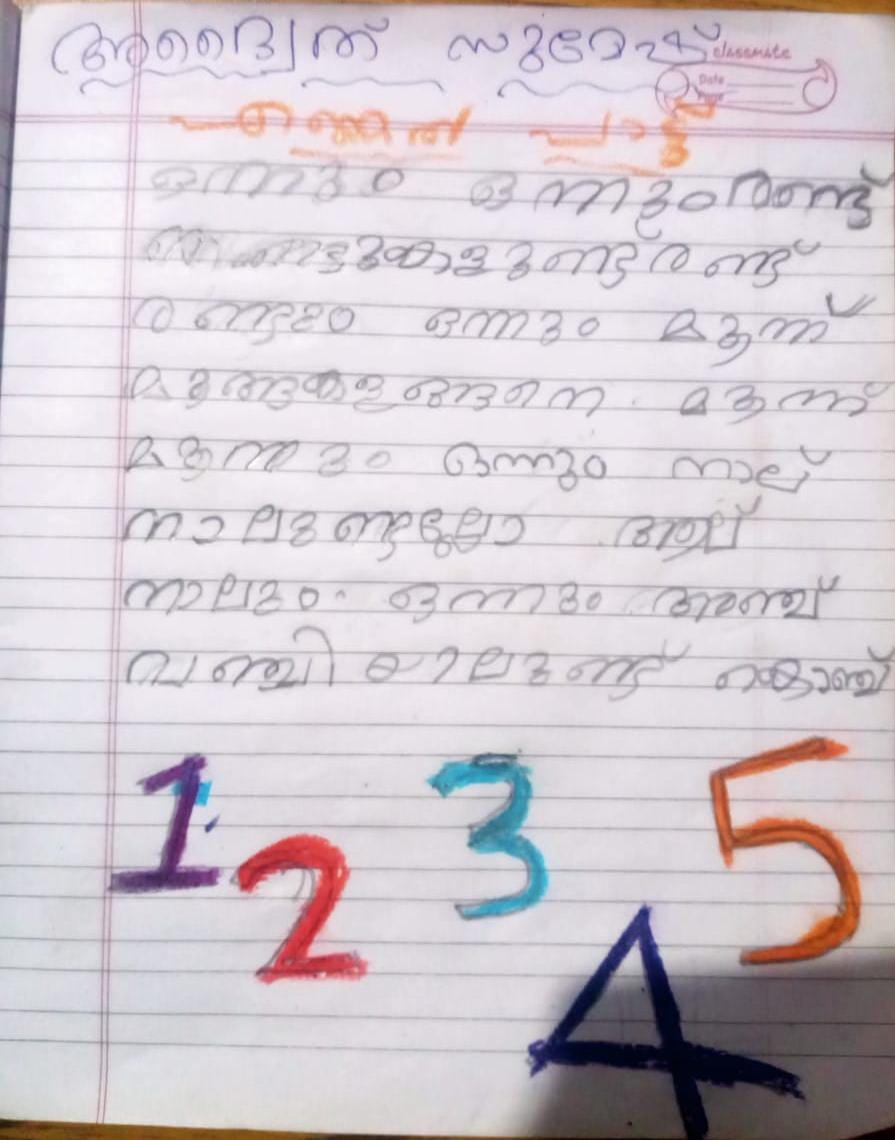 അദ്വൈത് സുരേഷ്
classmate
Date
Page
എണ്ണൽ പാട്ട്
ഒന്നും ഒന്നും രണ്ട്
രണ്ട്
രണ്ടും ഒന്നും മൂന്ന്
മൂന്ന്
മൂന്നും ഒന്നും നാല്
നാലുണ്ടല്ലോ ആല്
നാലും ഒന്നും അഞ്ച്
വഞ്ചിയാലുണ്ട്
1 2 3 4 5